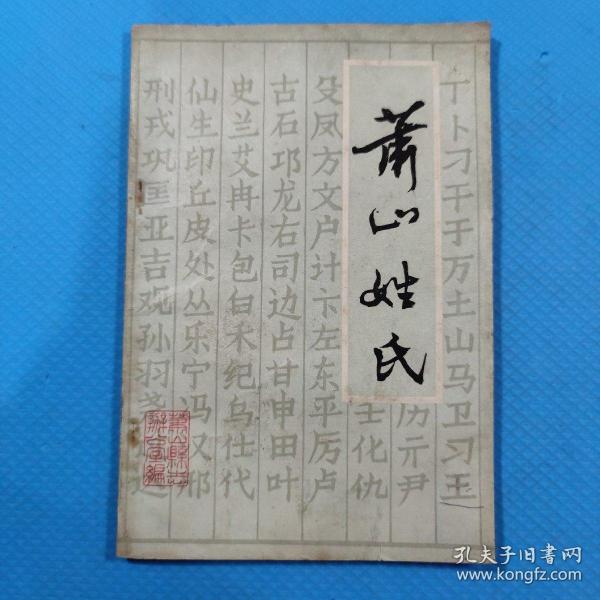 萧山姓氏
丁卜刁干于万土山马卫习王
历亓尹
壬化仇
殳凤方文户计卞左东平厉卢
古石邛龙右司边占甘申田叶
史兰艾冉卡包白禾纪乌仕代
仙生印丘皮处丛乐宁冯又邢
刑戎巩匡亚吉观孙羽
萧山县志
办公室编
孔夫子旧书网
www.kongfz.com